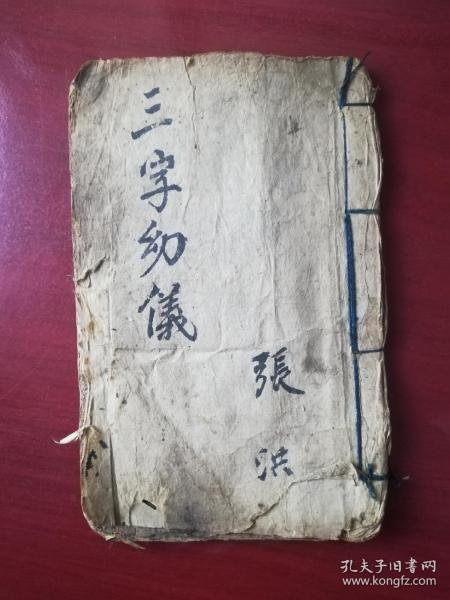 三字幼儀
張洪
孔夫子旧书网
www.kongfz.com